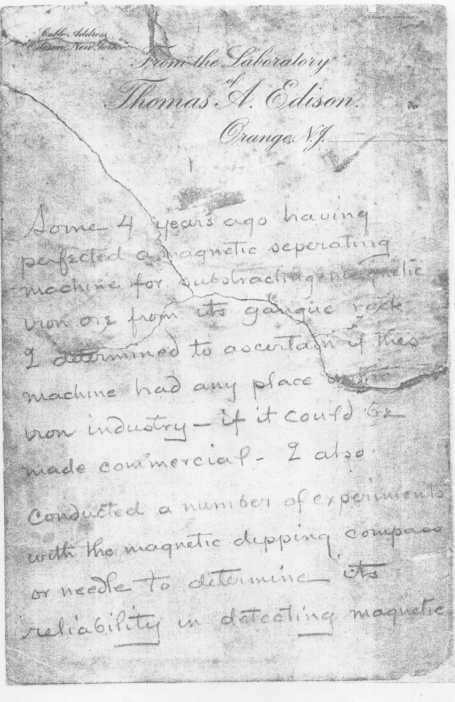 Cable Address
Edison, New York
From the Laboratory
of
Thomas A. Edison.
Orange, N.J.
Some 4 years ago having
perfected a magnetic seperating
machine for substracting magnetic
iron ore from its gangue rock
I determined to ascertain if this
machine had any place in the
iron industry – if it could be
made commercial – I also
Conducted a number of experiments
with the magnetic dipping compass
or needle to determine its
reliability in detecting magnetic